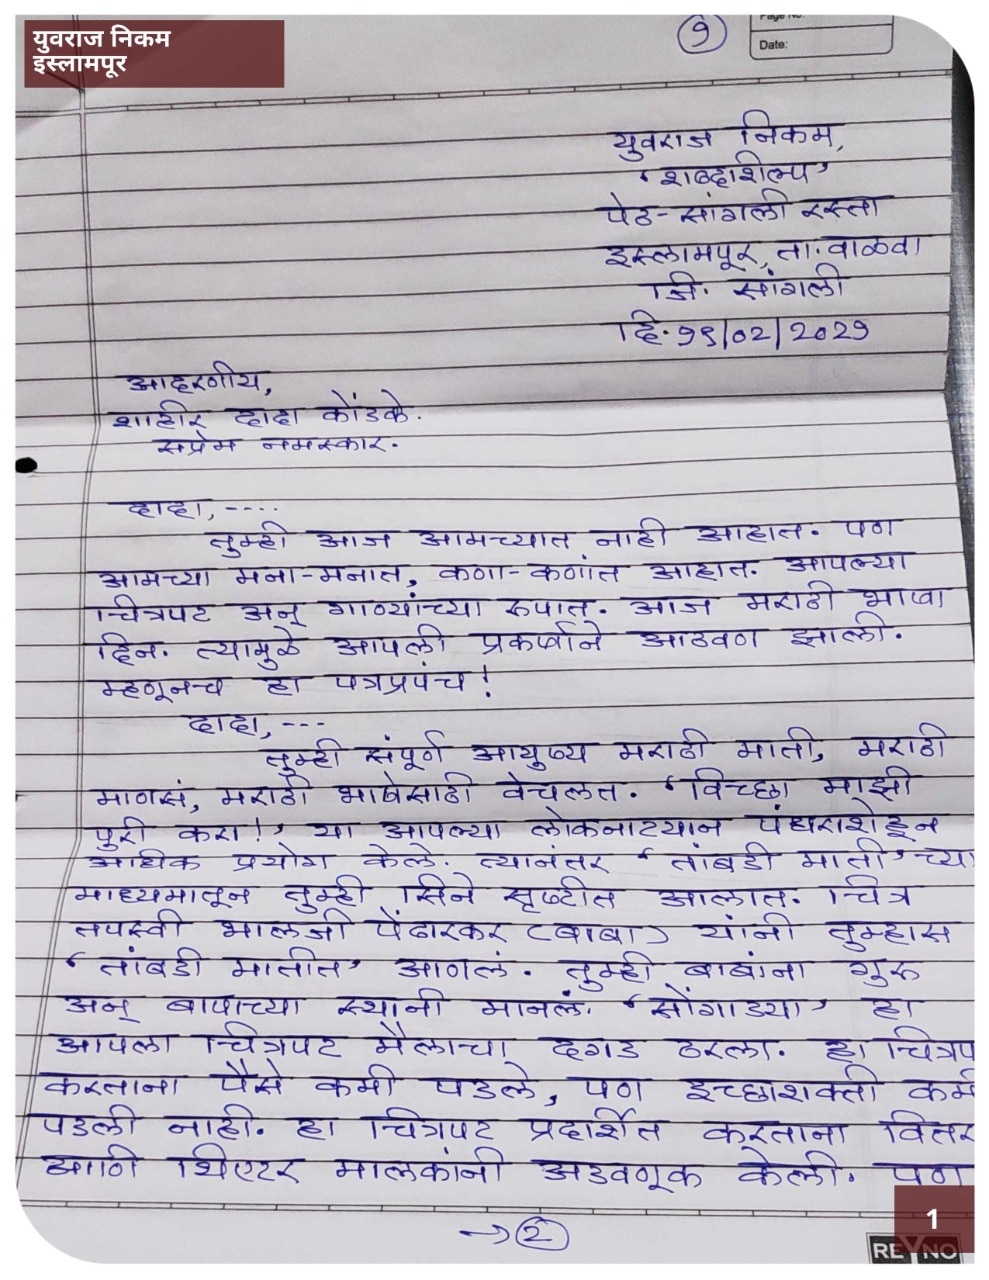 युवराज निकम
इस्लामपूर
१
Page No.
Date:
युवराज निकम,
'शब्दशिल्प'
पेठ-सांगली रस्ता
इस्लामपूर, ता. वाळवा
जि. सांगली
दि. १९/०२/२०२१
आदरणीय,
शाहीर दादा कोंडके.
सप्रेम नमस्कार.
दादा,----
तुम्ही आज आमच्यात नाही आहात. पण
आमच्या मना-मनात, कणा-कणांत आहात. आपल्या
चित्रपट अन् गाण्यांच्या रुपात. आज मराठी भाषा
दिन. त्यामुळे आपली प्रकर्षाने आठवण झाली.
म्हणूनच हा पत्रप्रपंच!
दादा,---
तुम्ही संपूर्ण आयुष्य मराठी माती, मराठी
माणसं, मराठी भाषेसाठी वेचलत. 'विच्छा माझी
पुरी करा!' या आपल्या लोकनाट्यान पंधराशेहून
अधिक प्रयोग केले. त्यानंतर 'तांबडी माती' च्या
माध्यमातून तुम्ही सिने सृष्टीत आलात. चित्र
तपस्वी भालजी पेंढारकर (बाबा) यांनी तुम्हास
'तांबडी मातीत' आणलं. तुम्ही बाबांना गुरू
अन् बापाच्या स्थानी मानलं. 'सोंगाड्या' हा
आपला चित्रपट मैलाचा दगड ठरला. हा चित्रप
करताना पैसे कमी पडले, पण इच्छाशक्ती कम
पडली नाही. हा चित्रपट प्रदर्शित करताना वितर
आणि थिएटर मालकांनी अडवणूक केली. पण
→ २
1
REYNO